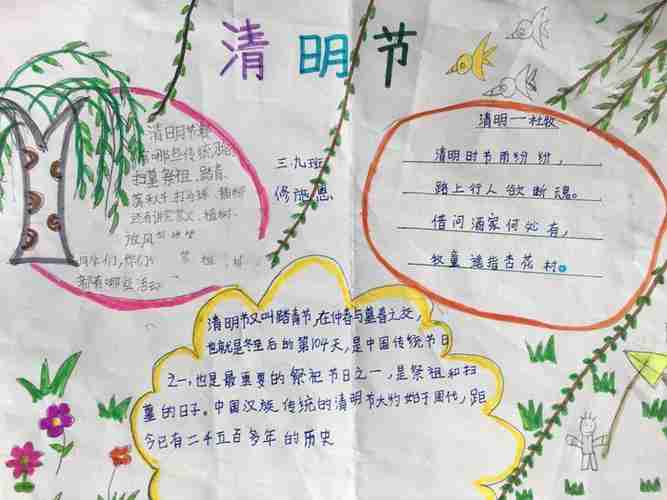 清明节
清明节都
有哪些传统呢
扫墓祭祖、踏青、
荡秋千、打马球、插柳
还有讲究禁火、植树、
放风
同学们,你们
都有哪些活动
三、九班
修
清明——杜牧
清明时节雨纷纷,
路上行人欲断魂。
借问酒家何处有,
牧童遥指杏花村。
清明节又叫踏青节,在仲春与暮春之交,
也就是冬至后的第104天,是中国传统节日
之一,也是最重要的祭祀节日之一,是祭祖和扫
墓的日子。中国汉族传统的清明节大约始于周代,距
今已有二千五百多年的历史